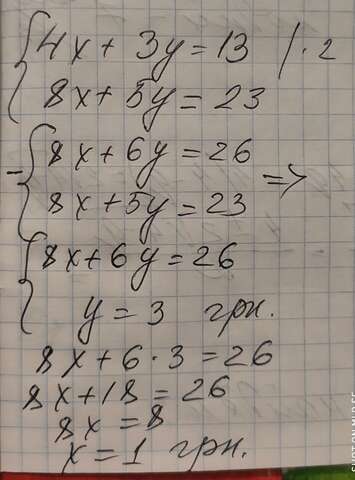 4x + 3y = 13 / · 2
8x + 5y = 23
- 8x + 6y = 26
8x + 5y = 23 =>
8x + 6y = 26
y = 3 грн.
8x + 6 · 3 = 26
8x + 18 = 26
8x = 8
x = 1 грн.